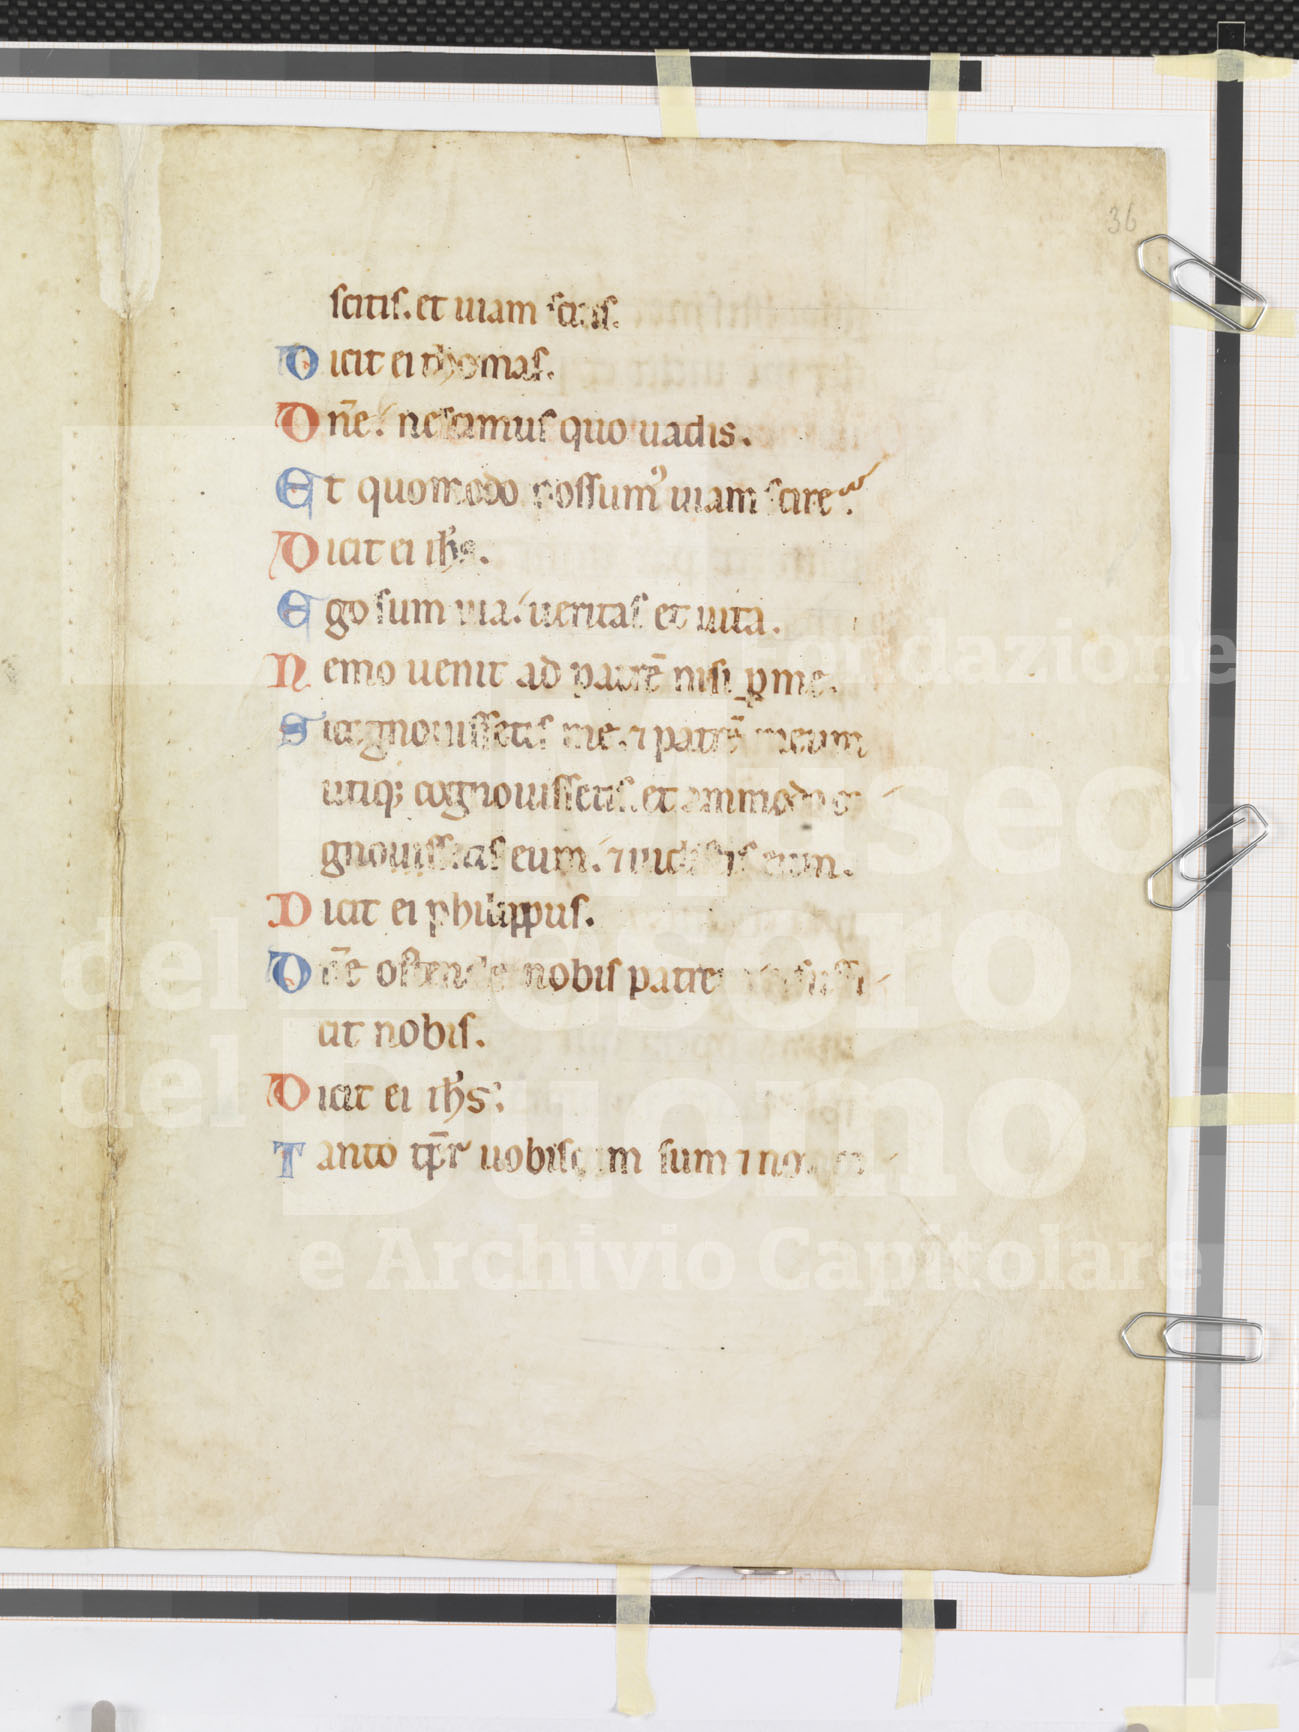 36
scitis. et uiam scitis.
Dicit ei thomas.
Dn̄e! nescimus quo uadis.
Et quomodo possumꝰ uiam scire?
Dicit ei ih̅s.
Ego sum uia! ueritas et uita.
Nemo uenit ad patrē nisi ꝑ me.
Si cognouissetis me. ⁊ patrē meum
utiqꝫ cognouissetis. et ammodo co
gnoscetis eum. ⁊ uidistis eum.
Dicit ei philippus.
Dn̄e ostende nobis patrem suffi
cit nobis.
Dicit ei ih̅s:
Tanto tp̄r uobiscum sum ⁊ non
Fondazione
Museo
del Tesoro
del Duomo
e Archivio Capitolare